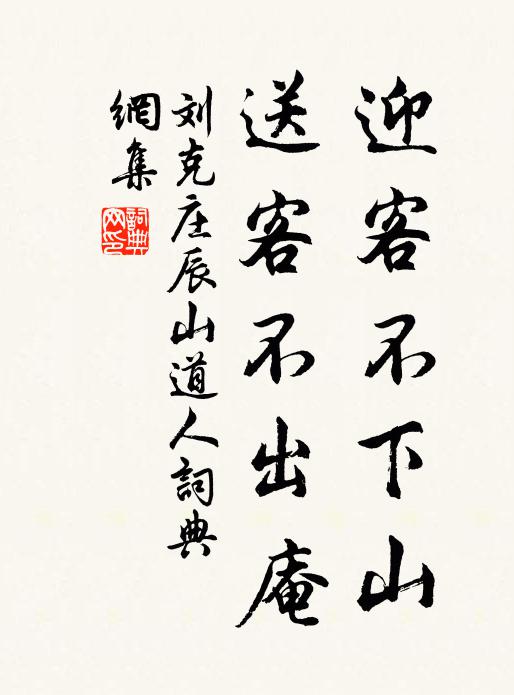 迎客不下山
送客不出庵
刘克庄辰山道人詞典
網集
詞典
网印